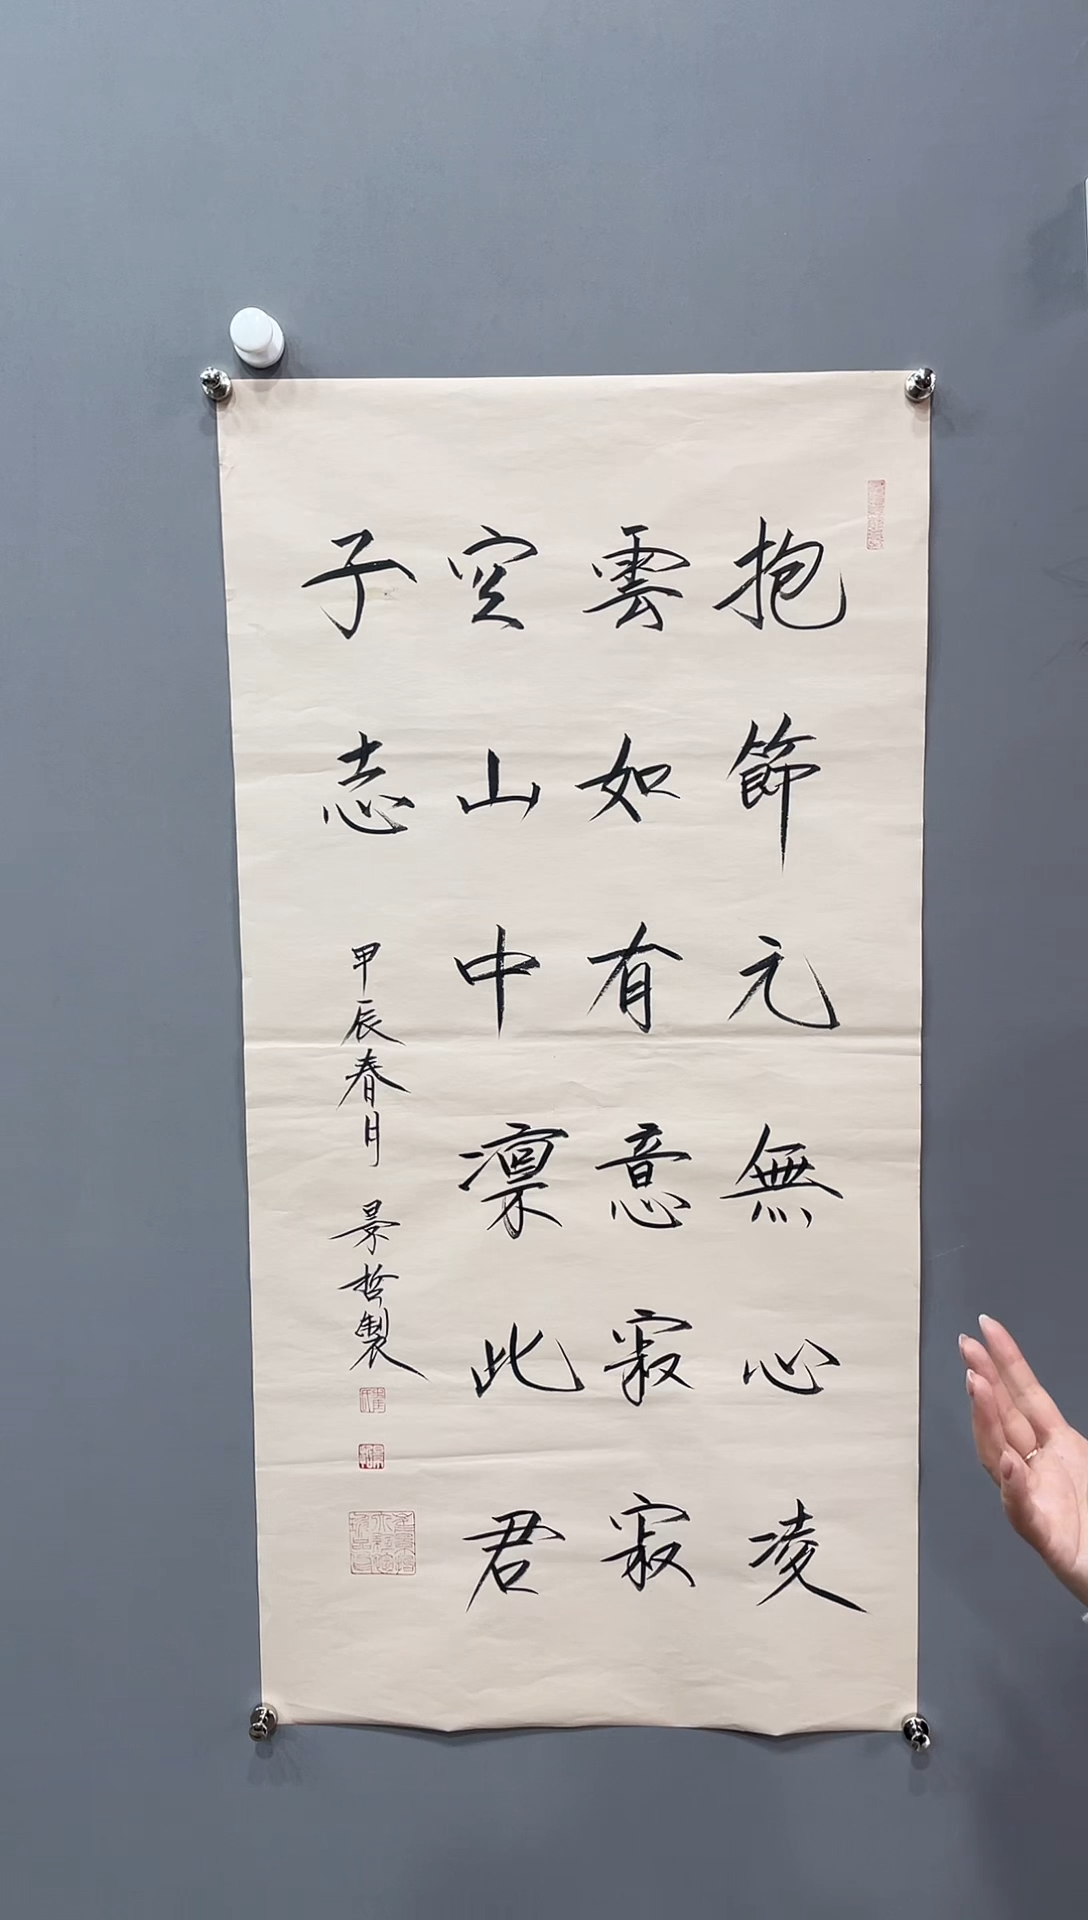 抱節元無心凌
雲如有意寂寂
空山中凛此君
子志
甲辰春月 景哲製